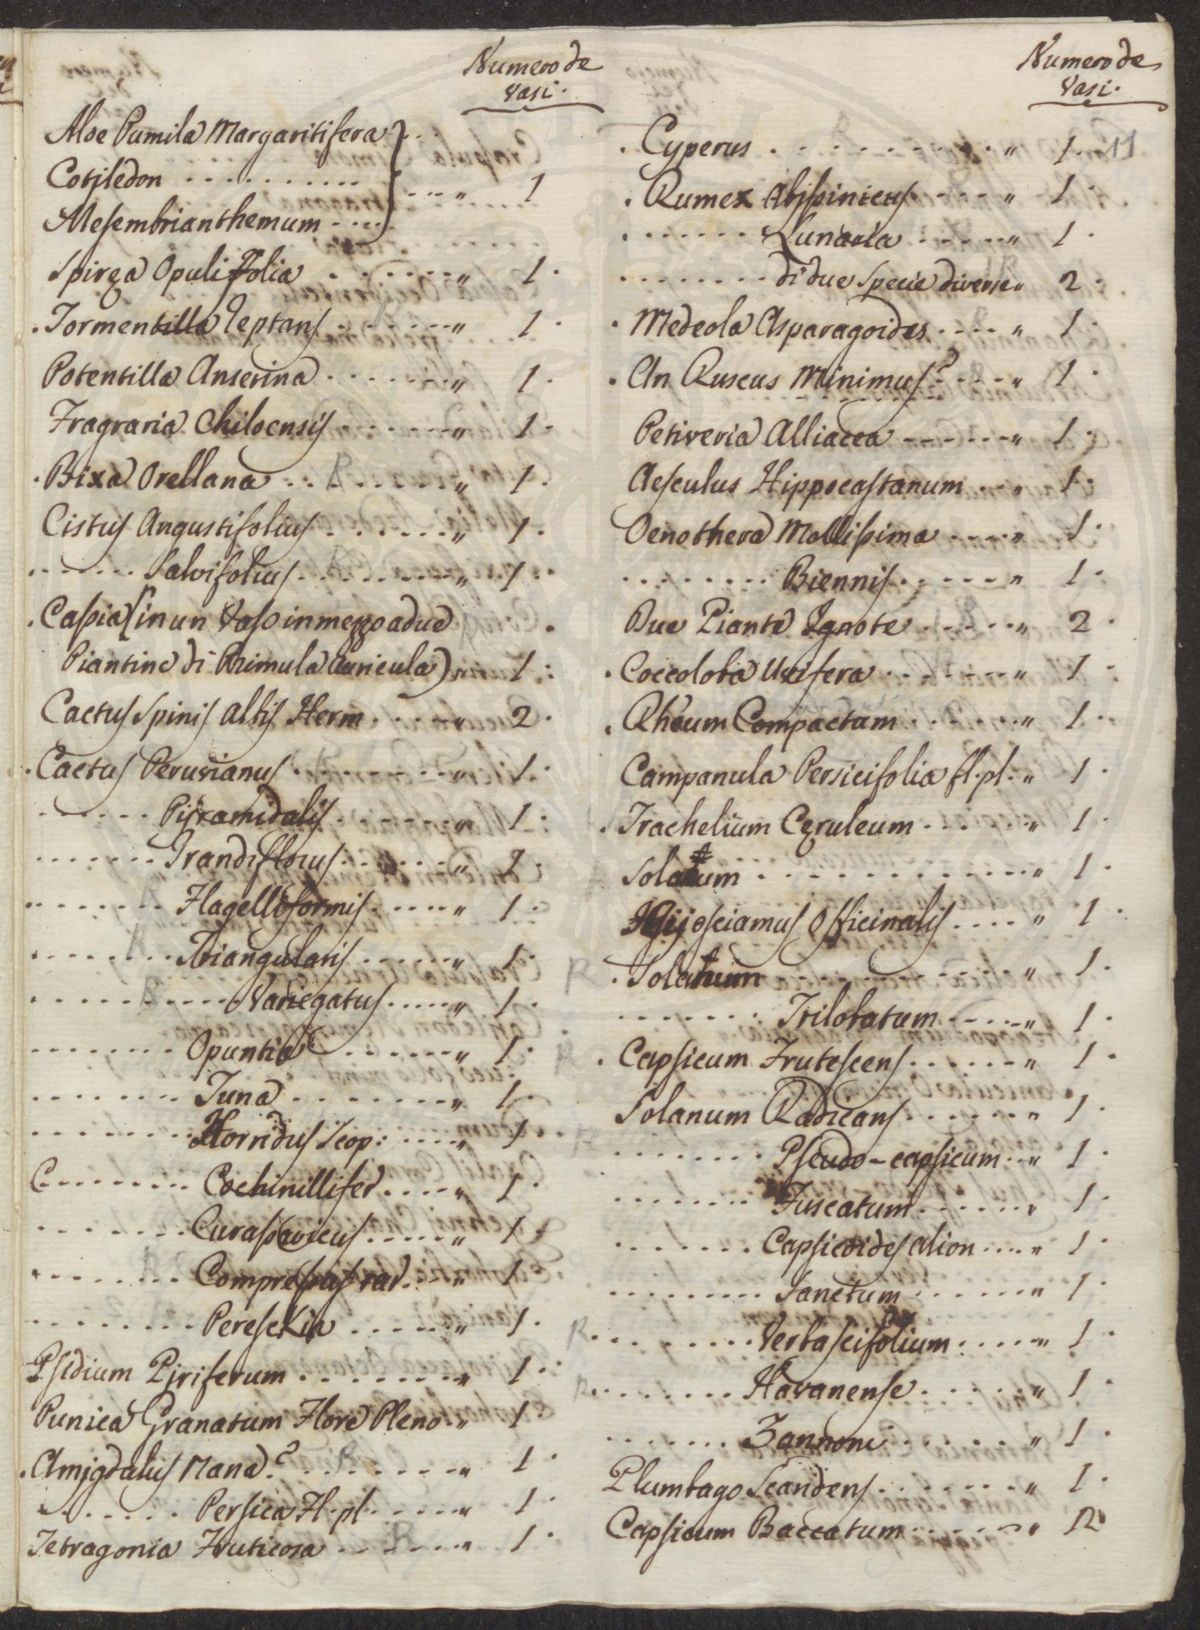 Numero de
Vasi.
Aloe Pumila Margaritifera
Cotÿledon . . . . . . . . . . . . . „ 1
Mesembrianthemum . . . .
Spirea Opulifolia . . . . . . . „ 1.
.Tormentilla Reptans . . . . . . . „ 1.
Potentilla Anserina . . . . . . . „ 1.
Fragraria Chiloensis . . . . . . „ 1.
.Bixa Orellana . . . R . . . „ 1.
Cistus Angustifolius . . . . . . „ 1.
. . . . . . Salvifolius . . R . . . . . „ 1.
.Cassia (in un Vaso in mezzo a due
Piantine di Primula Auricula) 1.
Cactus Spinis Altis Herm . . . . „ 2.
.Cactus Peruvianus . . . . . . . „ 1.
. . . . . . Piramidalis . . . . . . „ 1.
. . . . . . . Grandiflorus . . . . . „ 1.
. . . . . . . Flagelliformis . . . . . „ 1.
. . . . . . . Triangularis . . . . . „ 1.
. . . . . R . . . . Variegatus . . . . „ 1.
. . . . . . . . Opuntia . . . . . . . „ 1.
. . . . . . . . Tuna . . . . . . . . „ 1.
. . . . . . . . Horridus Scop: . . . . „ 1.
C . . . . . . . . Cochinillifer . . . . „ 1.
. . . . . . . . Curassavicus . . . . . „ 1.
. . . . . . . . „ 1.
. . . . . . . . Pereskia . . . . . „ 1.
Psidium Pÿriferum . . . . . . . . „ 1.
Punica Granatum Flore Pleno „ 1.
.Amÿgdalus Nana? . . R . . . . „ 1.
. . . . . . Persica Fl. pl . . . . . „ 1.
Tetragonia Fruticosa . . . R . . . „ 1.
Numero de
Vasi.
11
. Cyperus . . . . . . . . . . . „ 1.
. Rumex Abissinicus . . . . . „ 1.
. . . . . . . Lunaria . . . . . . „ 1.
. . . . . . . . di due Specie diverse „ 2.
. Medeola Asparagoides . . . . „ 1.
. An Ruscus Minimus? . . . . „ 1.
Petiveria Alliacea . . . . . . „ 1.
Aesculus Hippocastanum . . „ 1.
Oenothera Mollissima . . . . „ 1.
. . . . . . . . Biennis . . . . . „ 1.
Due Piante Ignote . . . . . . „ 2.
. Coccoloba Uvifera . . . . . . „ 1.
. Rheum Compactum . . . . . . „ 1.
Campanula Persicifolia fl. pl. „ 1.
. Trachelium Ceruleum . . . . . . „ 1.
Solanum . . . . . . . . . . . . . „ 1.
Hÿosciamus Officinalis . . . . „ 1.
R . Solanum . . . . . . . . . . „ 1.
. . . . . . . Trilobatum . . . . . „ 1.
R . Capsicum Frutescens . . . . . . „ 1.
Solanum Radicans . . . . . . „ 1.
R . . . . . . . Pseudo-capsicum . . „ 1.
. . . . . . . . Fuscatum . . . . . . „ 1.
. . . . . . . Capsicoides alion . . . . „ 1.
. . . . . . . . Sanctum . . . . . . „ 1.
R . . . . . . . . Verbascifolium . . . . „ 1.
R . . . . . . . . Havanense . . . . . . „ 1.
. . . . . . . Zannoni . . . . . . . „ 1.
Plumbago Scandens . . . . . . . „ 1.
Capsicum Baccatum . . . . . . „ 12